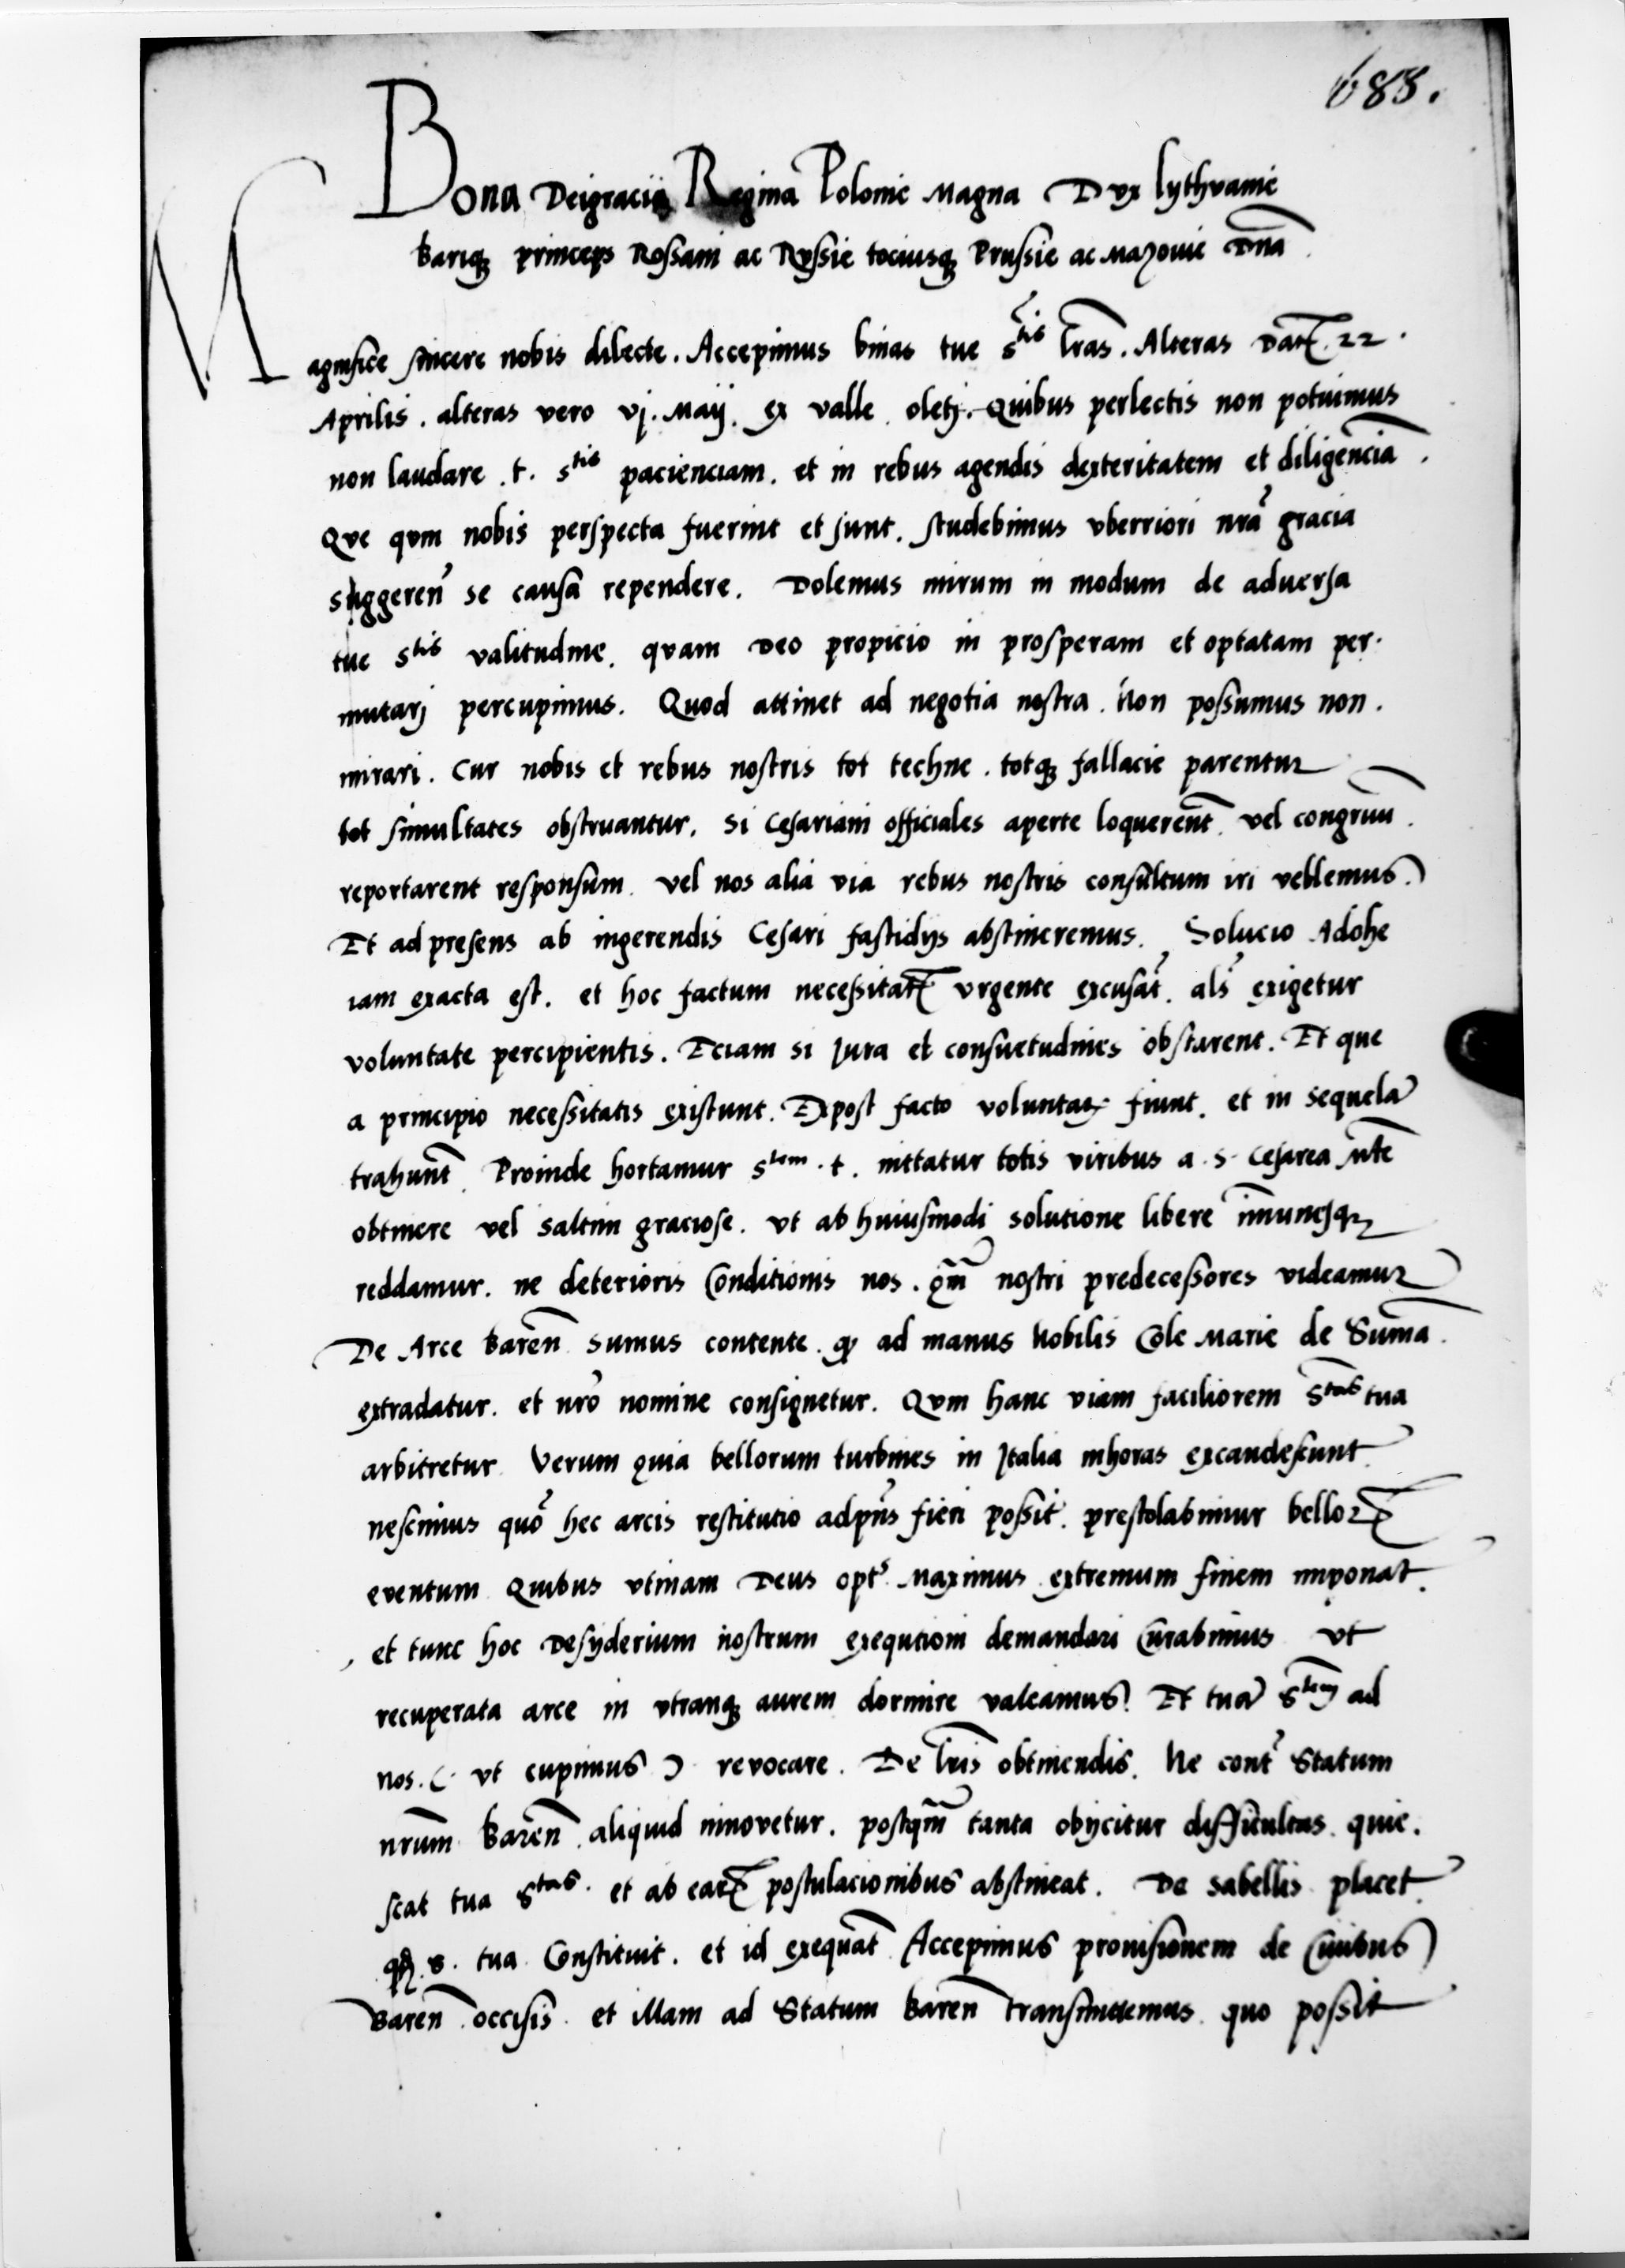 688.
Bona Dei gracia Regina Polonie Magna Dux lythvanie
Bariq₃ princeps Rossani ac Rvssie tociusq₃ Prussie ac Mazovie Dna
Magnifice sincere nobis dilecte. Accepimus binas tue S^tis lras. Alteras Dat. 22.
Aprilis. alteras vero vj. Maij. ex valle oletj. Quibus perlectis non potuimus
non laudare .t. S^tis pacienciam. et in rebus agendis dexteritatem et diligencia.
Qve qvm nobis perspecta fuerint et sunt. studebimus vberriori nra gracia
suggeren se causa rependere. Dolemus mirum in modum de adversa
tue S^tis valitudine. qvam Deo propicio in prosperam et optatam per-
mutarj percupimus. Quod attinet ad negotia nostra. Non possumus non.
mirari. Cur nobis et rebus nostris tot techne. totq₃ fallacie parentur
tot simultates obstruantur. Si Cesariani officiales aperte loquerent. vel congruu.
reportarent responsum. vel nos alia via rebus nostris consultum iri vellemus.
Et ad presens ab ingerendis Cesari fastidijs abstineremus. Solucio Adohe
iam exacta est. et hoc factum necessitate vrgente excusat. als exigetur
voluntate percipientis. Eciam si jura et consuetudines obstarent. Et que
a principio necessitatis existunt. Expost facto voluntar. fiunt. et in sequela
trahunt. Proinde hortamur S^tem .t. nittatur totis viribus a .S. Cesarea mte
obtinere vel saltim graciose. vt ab huiusmodi solutione libere immunesq₃
reddamur. ne deterioris Conditionis nos. qm nostri predecessores videamur
De Arce Baren sumus contente. q ad manus Nobilis Cole Marie de Suma.
extradatur. et nro nomine consignetur. Qvm hanc viam faciliorem S^tas tua
arbitretur. Verum quia bellorum turbines in Italia inhoras excandescunt.
nescimus quo hec arcis restitutio adpns fieri possit. prestolabimur bellor
eventum. Quibus vtinam Deus opt^s Maximus extremum finem imponat.
et tunc hoc Desyderium nostrum exequtioni demandari Curabimus vt
recuperata arce in vtranq₃ aurem dormire valeamus. Et tua S^tem ad
nos. ( vt cupimus ) revocare. De lris obtinendis. Ne cont Statum
nrum Baren aliquid innovetur. postqm tanta obijcitur difficultas. quie-
scat tua S^tas. et ab ear postulacionibus abstineat. De sabellis placet.
qd .S. tua Constituit. et id exequat Accepimus provisionem de Civibus
Baren occisis. et illam ad Statum Baren transmittemus. quo possit